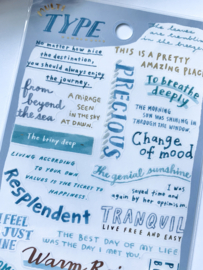 TYPE
No matter how nice
the destination,
you should always enjoy
the journey.
from
beyond
the sea
A MIRAGE
SEEN
IN THE SKY
AT DAWN.
PRECIOUS
THIS IS A PRETTY
AMAZING PLACE
To breathe
deeply.
THE MORNING
SUN WAS SHINING IN
THROUGH THE WINDOW.
Change
of mood
The being deep
The genial sunshine
LIVING ACCORDING
TO YOUR OWN
VALUES IS THE TICKET TO
HAPPINESS.
I was
saved time and
again by her optimism.
Resplendent
TRANQUIL
LIVE FREE AND EASY
I FEEL
JUST
FINE
THE BEST DAY OF MY LIFE
WAS THE DAY I MET YOU.
Warm